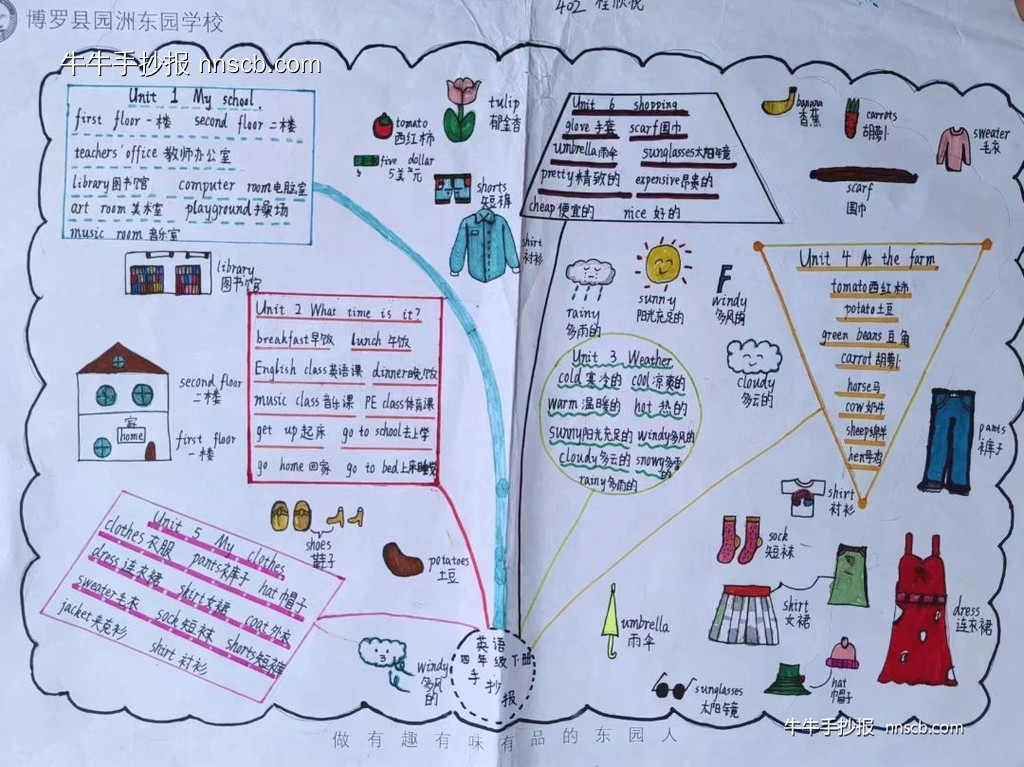 博罗县园洲东园学校
402
牛牛手抄报 nnscb.com
Unit 1 My school.
first floor 一楼 second floor 二楼
teachers' office 教师办公室
library 图书馆 computer room 电脑室
art room 美术室 playground 操场
music room 音乐室
tomato
西红柿
tulip
郁金香
five dollar
5美元
shorts
短裤
shirt
衬衫
library
图书馆
Unit 6 shopping
glove 手套 scarf 围巾
umbrella 雨伞 sunglasses 太阳镜
pretty 精致的 expensive 昂贵的
cheap 便宜的 nice 好的
banana
香蕉
carrots
胡萝卜
sweater
毛衣
scarf
围巾
Unit 2 What time is it?
breakfast 早饭 lunch 午饭
English class 英语课 dinner 晚饭
music class 音乐课 PE class 体育课
get up 起床 go to school 去上学
go home 回家 go to bed 上床睡觉
rainy
多雨的
sunny
阳光充足的
windy
多风的
cloudy
多云的
Unit 3 Weather
cold 寒冷的 cool 凉爽的
warm 温暖的 hot 热的
sunny 阳光充足的 windy 多风的
cloudy 多云的 snowy 多雪的
rainy 多雨的
Unit 4 At the farm
tomato 西红柿
potato 土豆
green beans 豆角
carrot 胡萝卜
horse 马
cow 奶牛
sheep 绵羊
hen 母鸡
second floor
二楼
first floor
一楼
home
pants
裤子
shirt
衬衫
shoes
鞋子
potatoes
土豆
sock
短袜
skirt
女裙
dress
连衣裙
Unit 5 My clothes
clothes 衣服 pants 裤子 hat 帽子
dress 连衣裙 skirt 女裙 coat 外衣
sweater 毛衣 sock 短袜 shorts 短裤
jacket 夹克衫 shirt 衬衫
windy
多风的
英语
四年级下册
手抄报
umbrella
雨伞
sunglasses
太阳镜
hat
帽子
牛牛手抄报 nnscb.com
做有趣有味有品的东园人